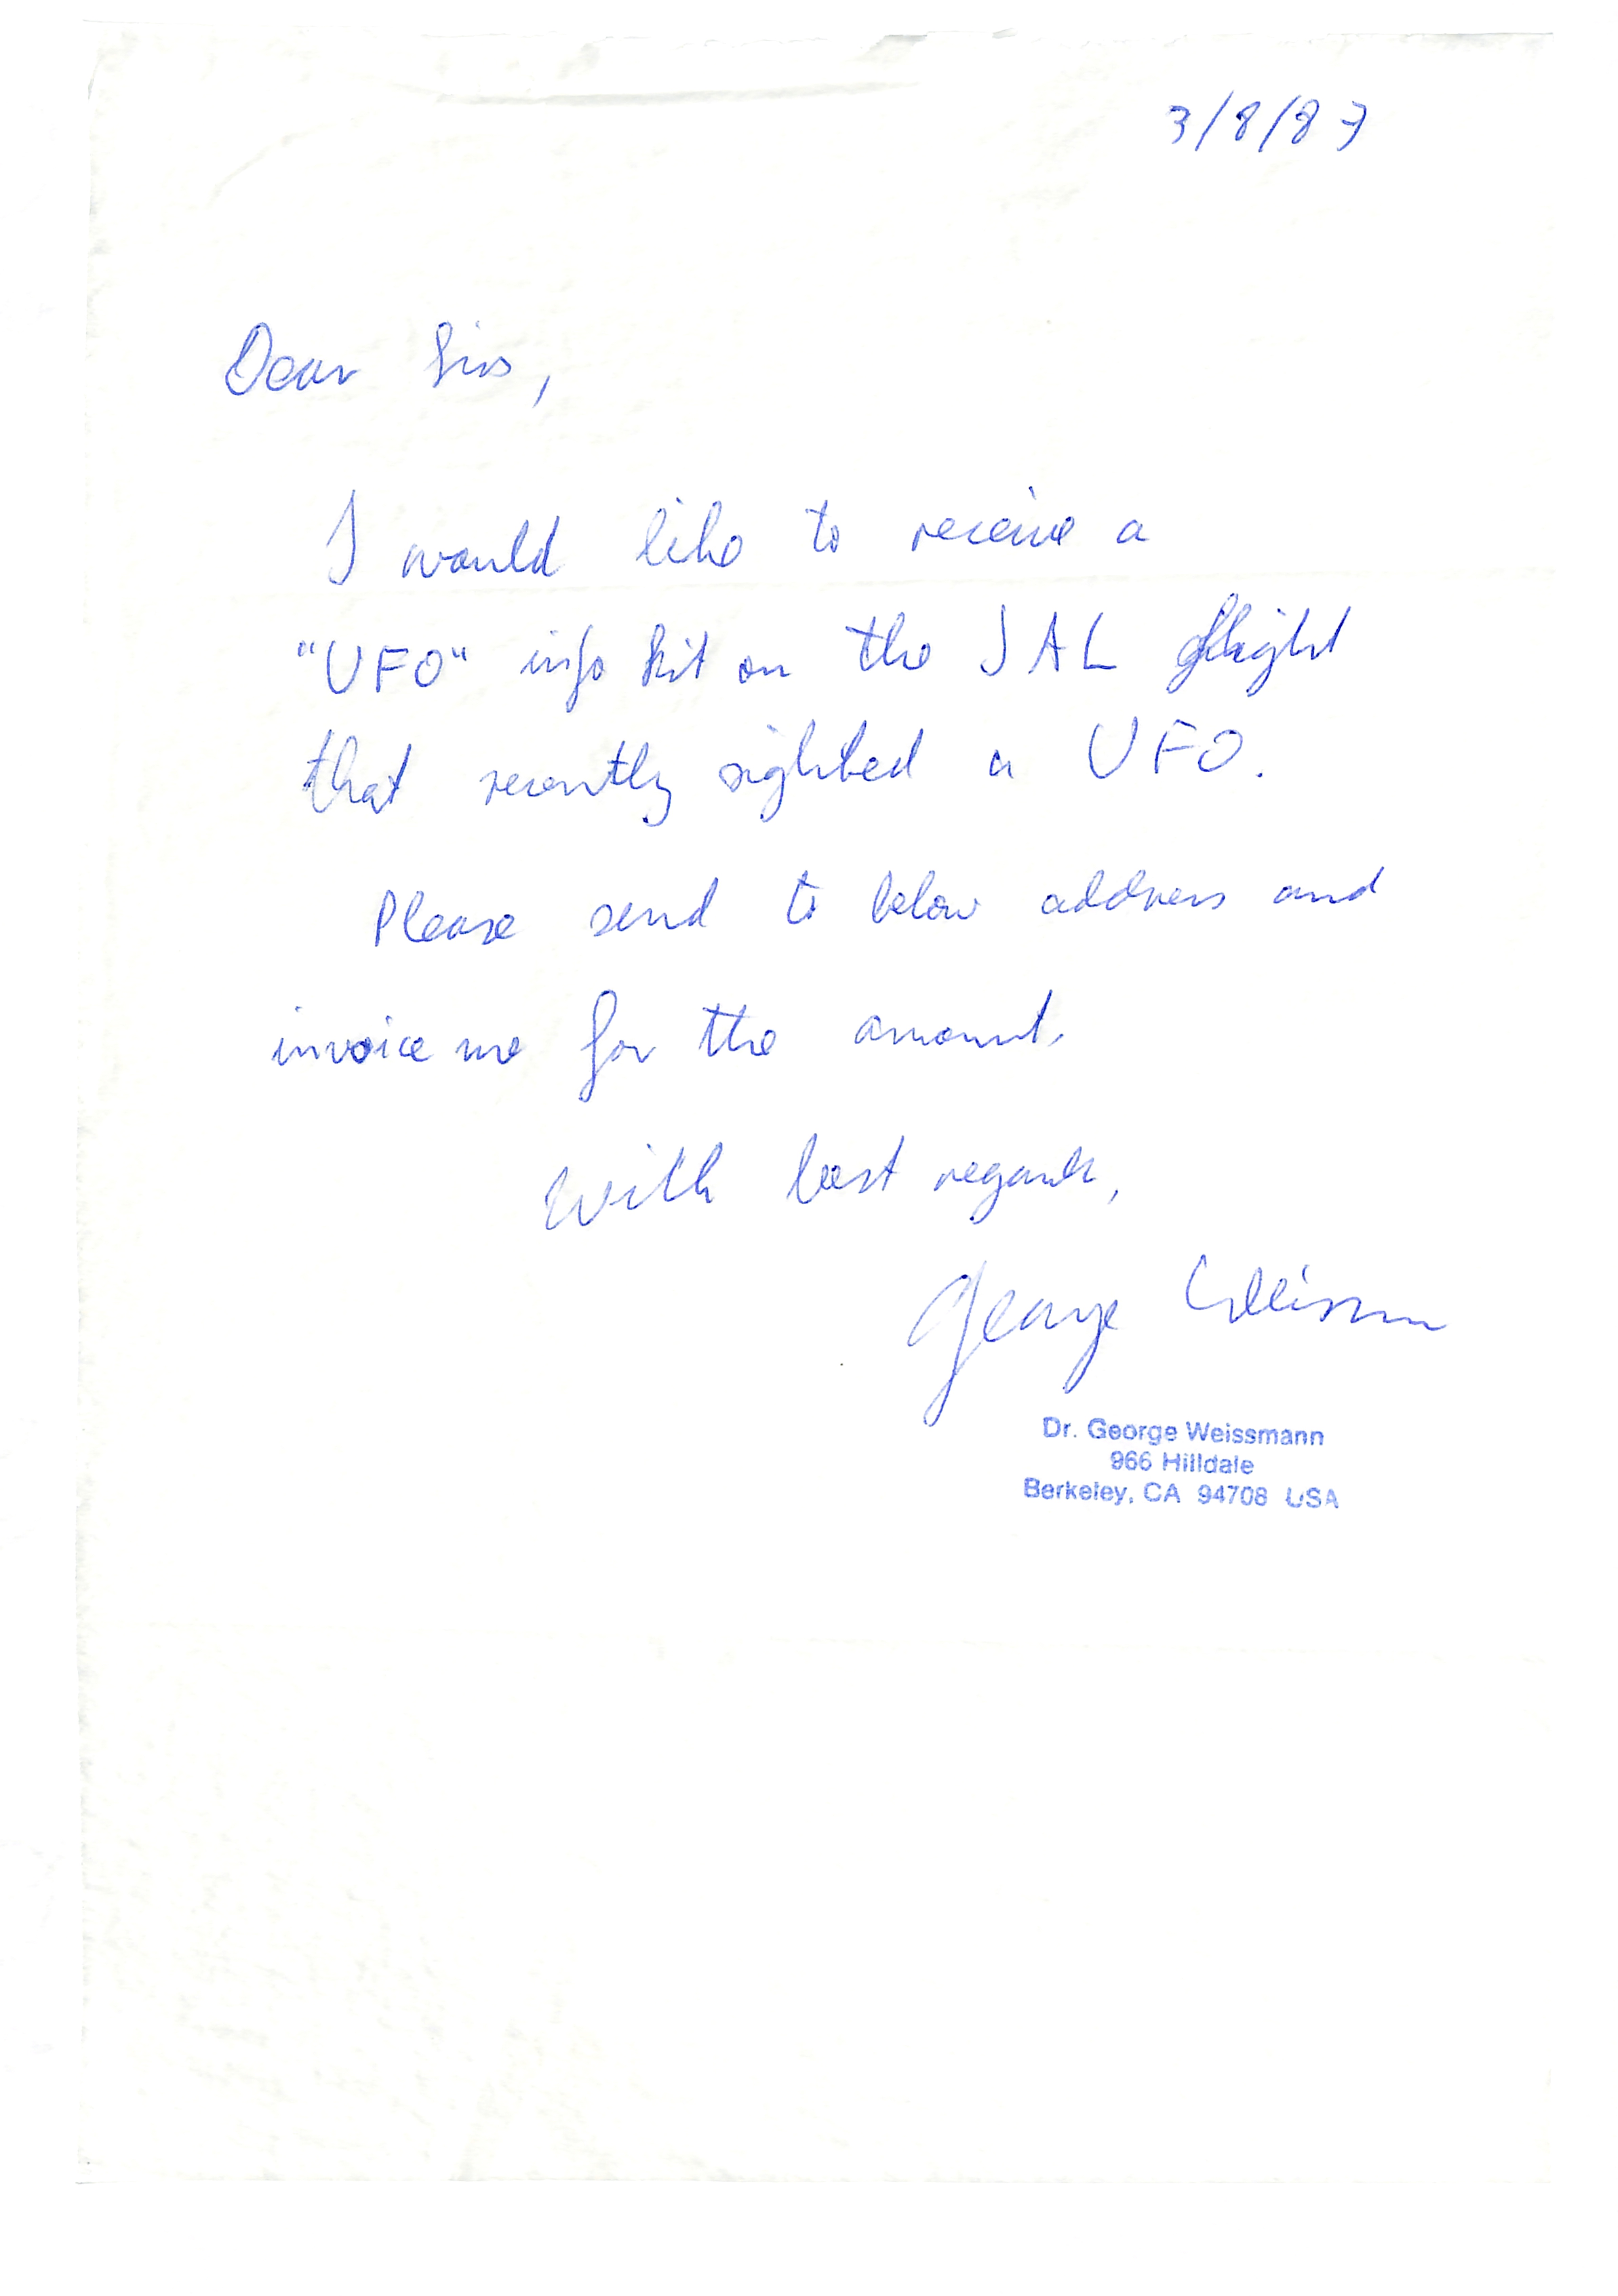 3/8/87
Dear Sirs,
I would like to receive a
"UFO" info kit on the JAL flight
that recently sighted a UFO.
Please send to below address and
invoice me for the amount.
With best regards,
George Weissmann
Dr. George Weissmann
966 Hilldale
Berkeley, CA 94708 USA